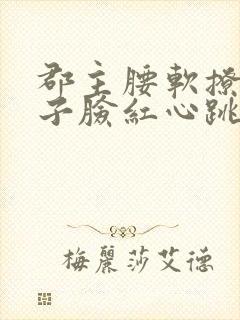 郡主腰軟撩
子臉紅心跳
梅麗莎艾德